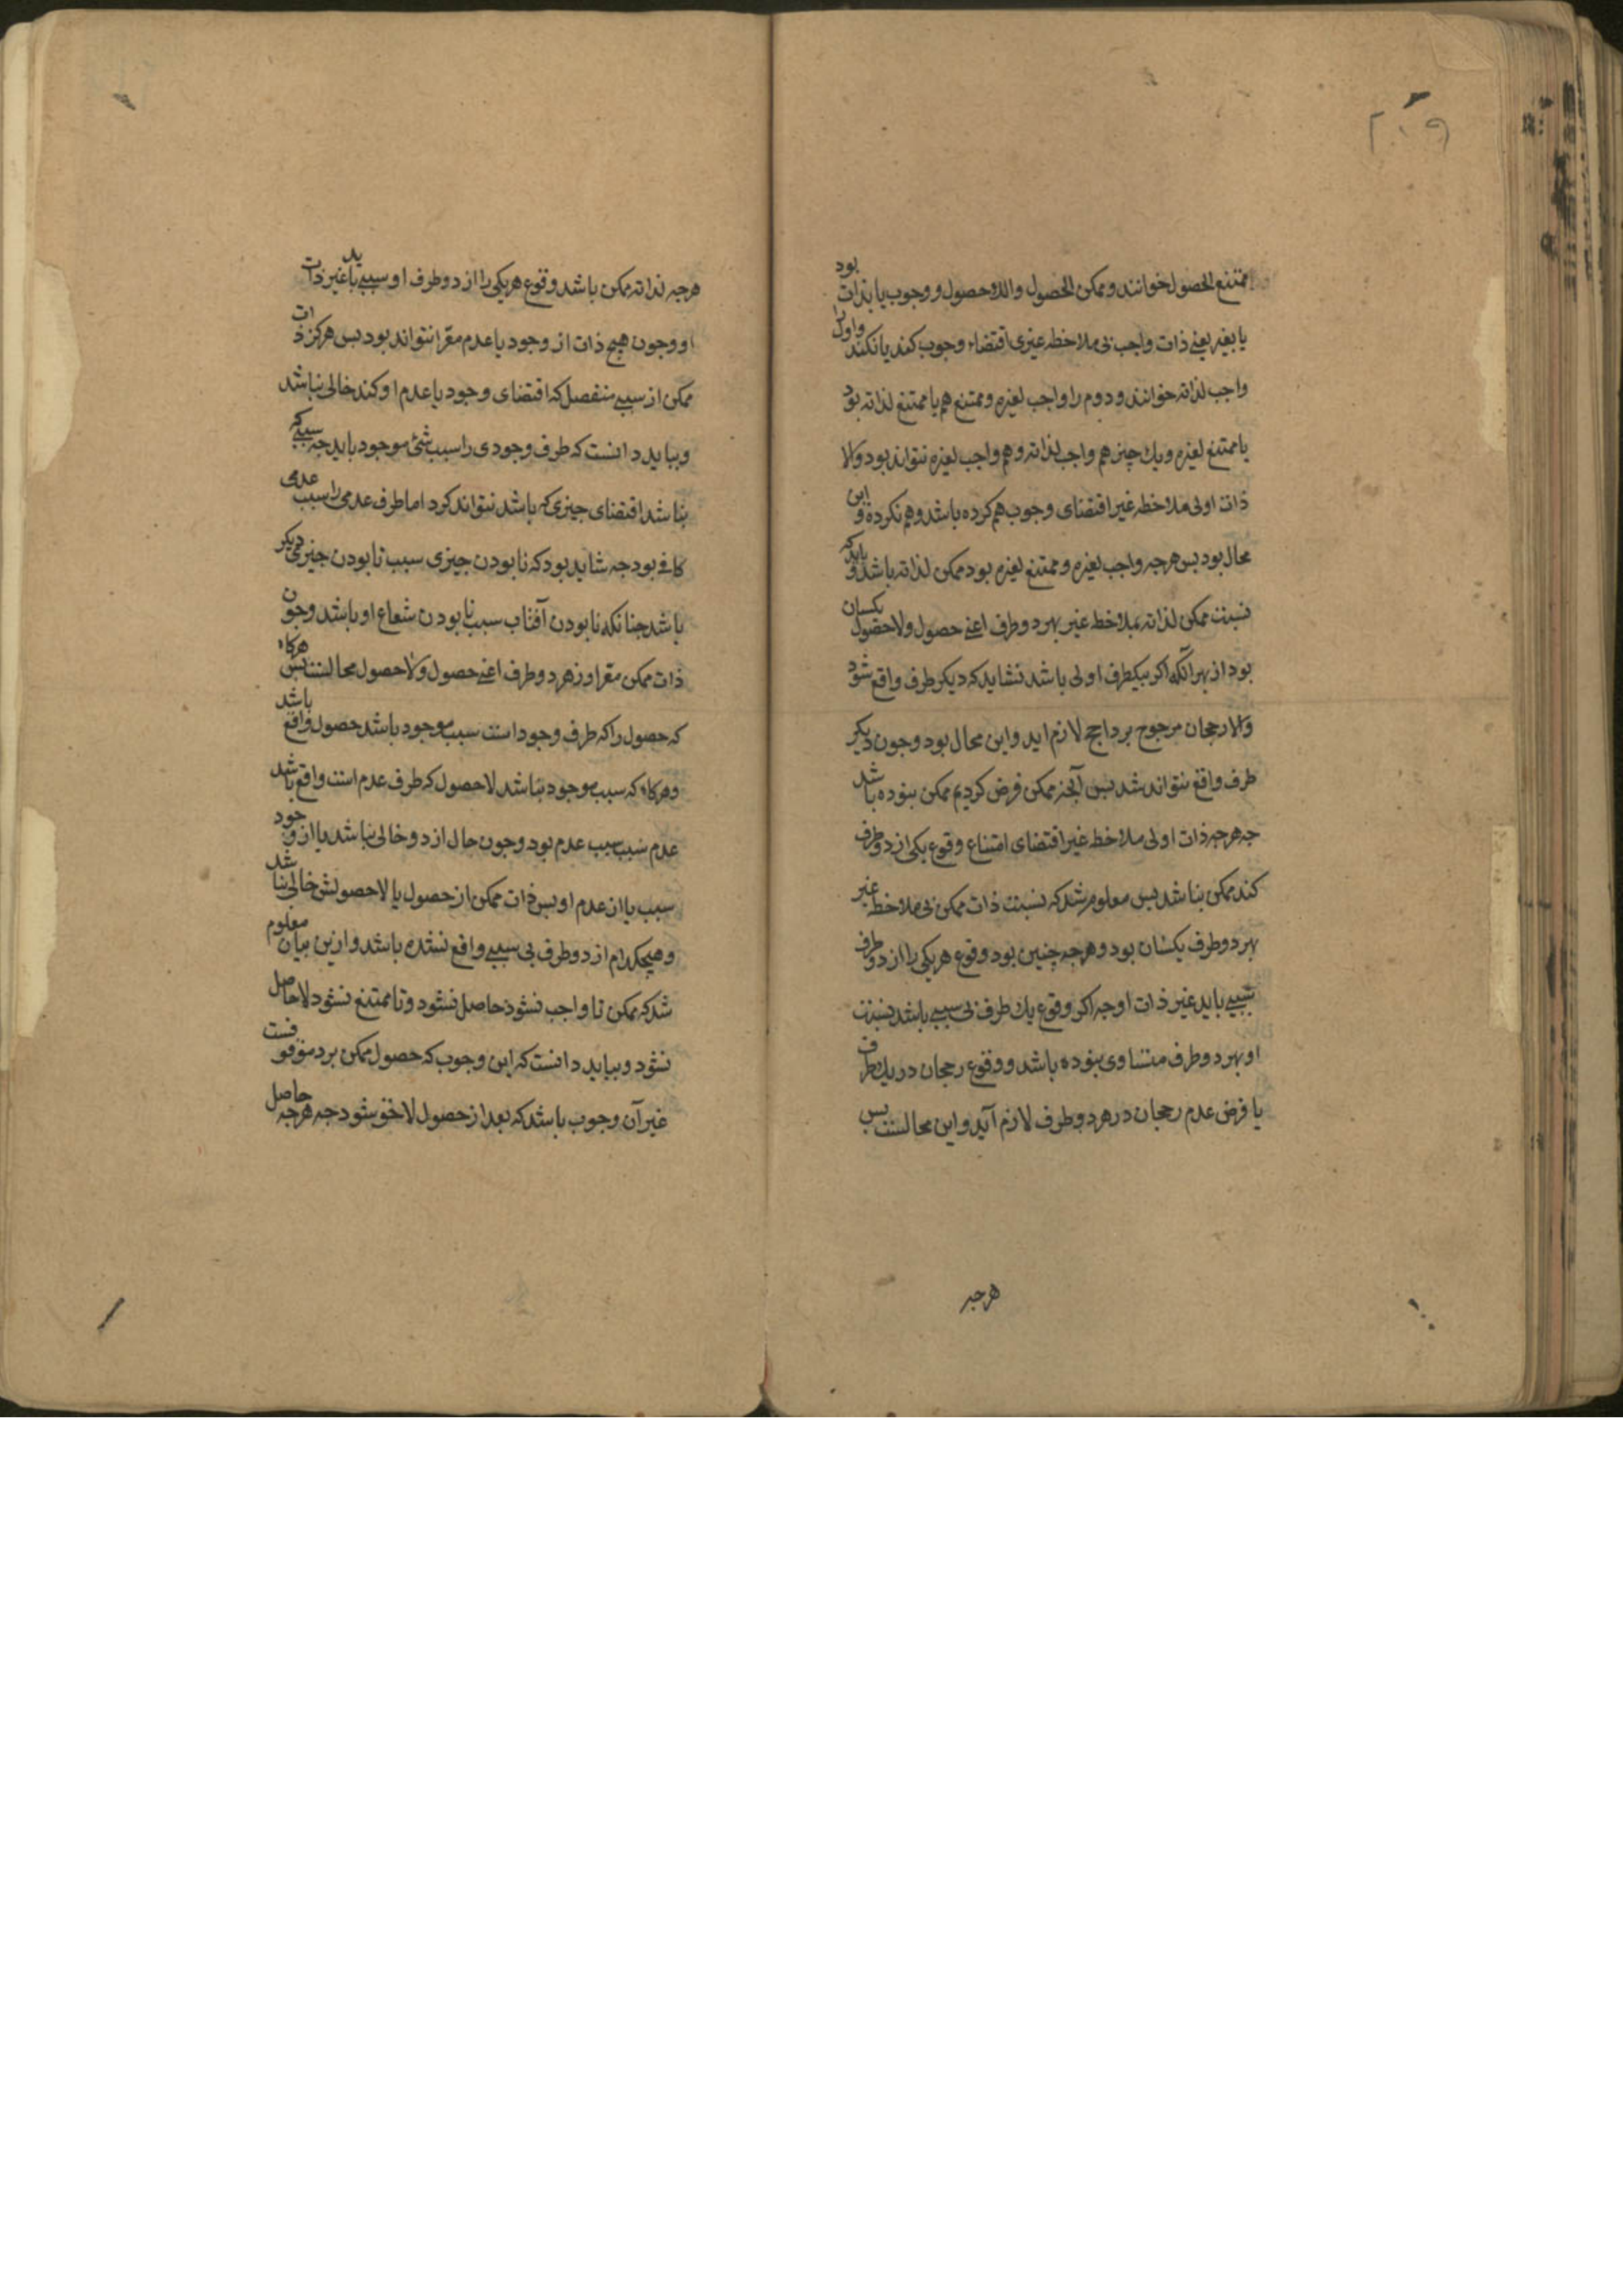 ۲۰۹
ممتنع الحصول خوانند و ممکن الحصول واللاحصول و وجوب یا بذات بود
یا بغیر یعنی ذات واجب بی ملاحظه غیری اقتضاء وجوب کند یا نکند و اول را
واجب لذاته خوانند و دوم را واجب لغیره و ممتنع هم یا ممتنع لذاته بود
یا ممتنع لغیره و یك چیز هم واجب لذاته و هم واجب لغیره نتواند بود والا
ذات او بی ملاحظه غیر اقتضای وجوب هم کرده باشد و هم نکرده و این
محال بود بس هرجه واجب لغیره و ممتنع لغیره بود ممکن لذاته باشد و باید که
نسبت ممکن لذاته بملاحظه غیر بهر دو طرف اعنی حصول ولاحصول یکسان
بود از بهر آنکه اکر بیکطرف اولی باشد نشاید که دیکر طرف واقع شود
والا رجحان مرجوح بر راجح لازم اید و این محال بود و جون دیکر
طرف واقع نتواند شد بس آنجه ممکن فرض کردیم ممکن نبوده باشد
جه هرجه ذات او بی ملاحظه غیر اقتضای امتناع وقوع یکی از دو طرف
کند ممکن نباشد بس معلوم شد که نسبت ذات ممکن بی ملاحظه غیر
بهر دو طرف یکسان بود و هرجه چنین بود وقوع هر یکی را از دو طرف
سببی باید غیر ذات او جه اکر وقوع یك طرف بی سببی باشد نسبت
او بهر دو طرف متساوی نبوده باشد و وقوع رجحان در یك طرف
با فرض عدم رجحان در هر دو طرف لازم آید و این محالست بس
هرجه
هرجه لذاته ممکن باشد وقوع هر یکی را از دو طرف او سببی باید غیر ذات
او وجون هیج ذات از وجود یا عدم معرا نتواند بود بس هرکز ذات
ممکن از سببی منفصل که اقتضای وجود یا عدم او کند خالی نباشد
و بباید دانست که طرف وجودی را سبب شئ موجود باید جه سببی که
نباشد اقتضای جیزی که باشد نتواند کرد اما طرف عدمی را سبب عدمی
کافی بود جه شاید بود که نابودن جیزی سبب نابودن جیزی دیکر
باشد جنانکه نابودن آفتاب سبب نابودن شعاع او باشد وجون
ذات ممکن معرا از هر دو طرف اعنی حصول ولاحصول محالست بس هرکاه
که حصول را که طرف وجود است سبب موجود باشد حصول واقع باشد
و هرکاه که سبب موجود نباشد لاحصول که طرف عدم است واقع باشد
عدم سبب سبب عدم بود وجون حال از دو خالی نباشد یا از وجود
سبب یا از عدم او بس ذات ممکن از حصول یا لاحصولش خالی نباشد
و هیچکدام از دو طرف بی سببی واقع نشده باشد و ازین بیان معلوم
شد که ممکن تا واجب نشود حاصل نشود و تا ممتنع نشود لاحاصل
نشود و بباید دانست که این وجوب که حصول ممکن بر و موقوفست
غیر آن وجوب باشد که بعد از حصول لاحق شود جه هرجه حاصل